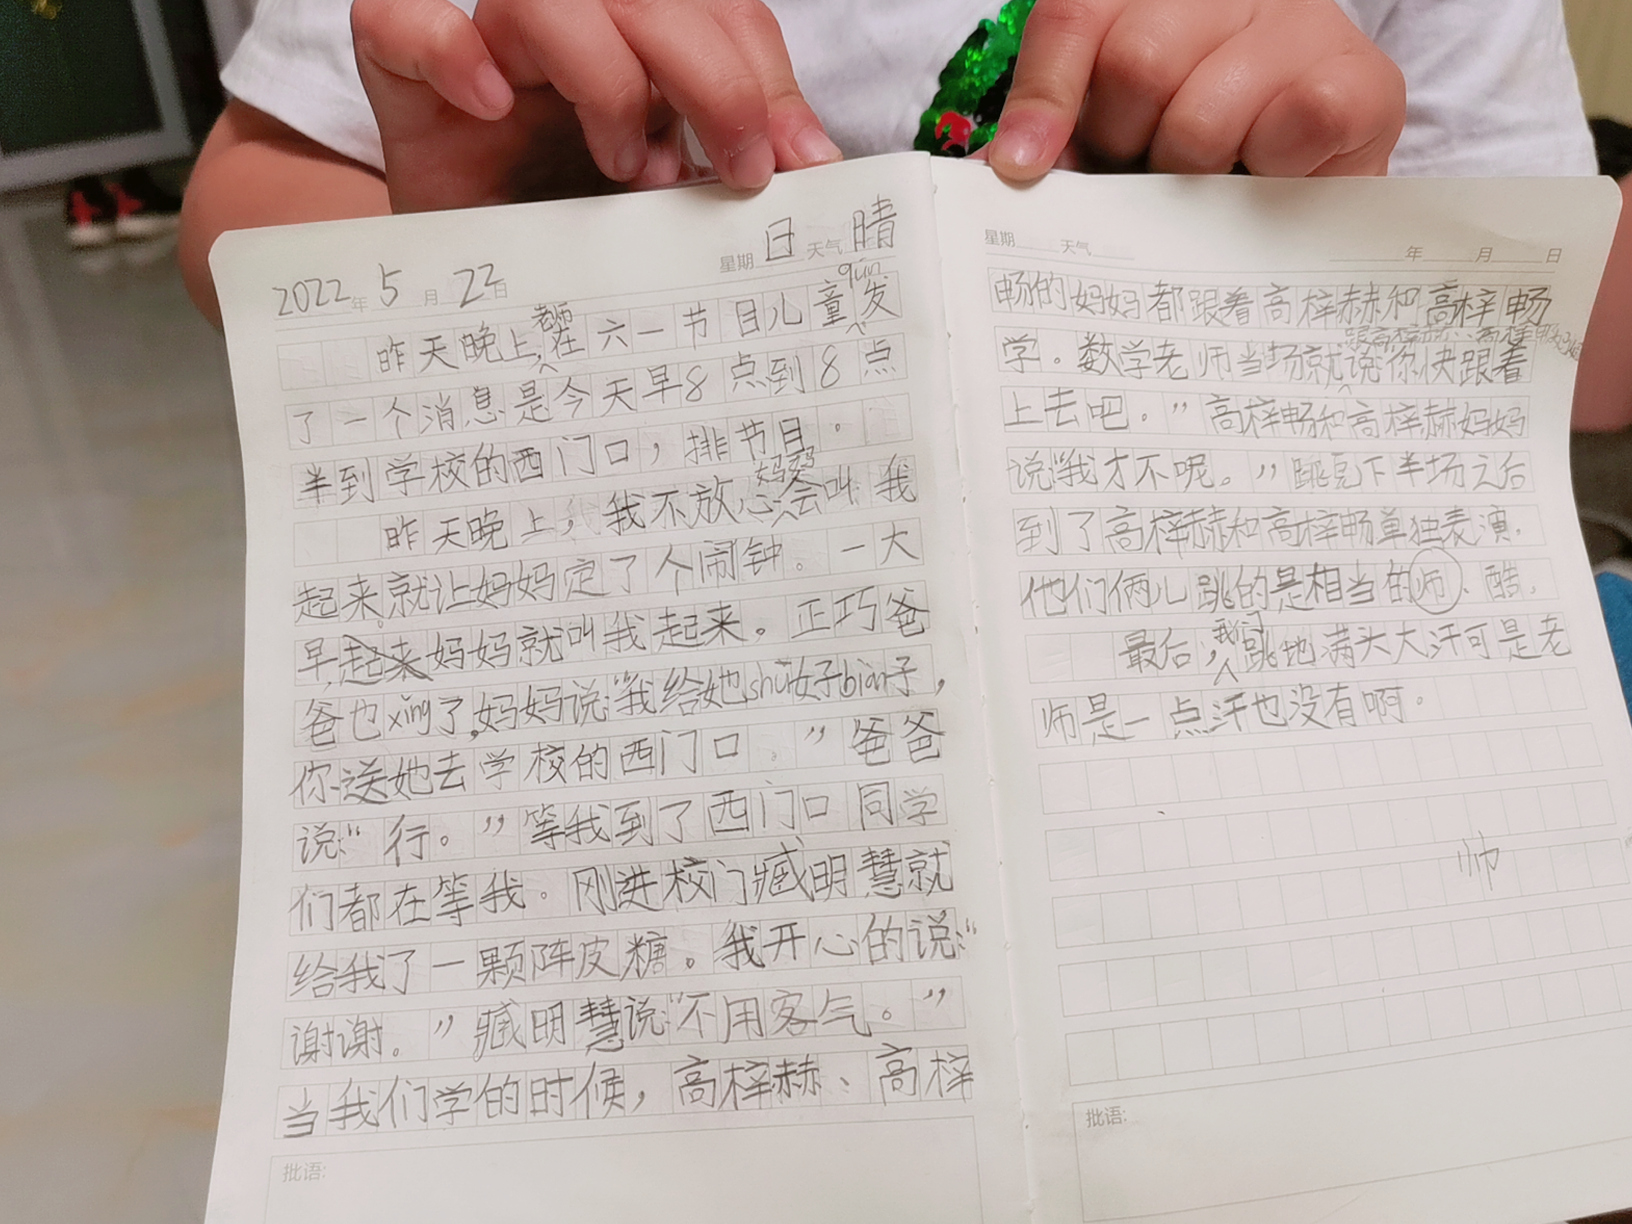 星期 日 天气 晴
2022年 5月 22日
昨天晚上,老师在六一节目儿童qún发
了一个消息是今天早8点到8点
半到学校的西门口，排节目.
昨天晚上，我不放心妈妈会叫我
起来,就让妈妈定了个闹钟。一大
早,起来妈妈就叫我起来。正巧爸
爸也xǐng了,妈妈说:“我给她shū好biàn子，
你送她去学校的西门口.”爸爸
说:“行。”等我到了西门口同学
们都在等我。刚进校门臧明慧就
给我了一颗陈皮糖。我开心的说:“
谢谢。”臧明慧说:“不用客气。”
当我们学的时候，高梓赫、高梓
批语:
星期 天气 年 月 日
畅的妈妈都跟着高梓赫和高梓畅
学。数学老师当场就跟高梓赫、高梓畅妈妈说:“你快跟着
上去吧.”高梓畅和高梓赫妈妈
说:“我才不呢。”跳完下半场之后
到了高梓赫和高梓畅单独表演.
他们俩儿跳的是相当的师、酷.
最后,我们跳地满头大汗可是老
师是一点汗也没有啊.
帅
批语: